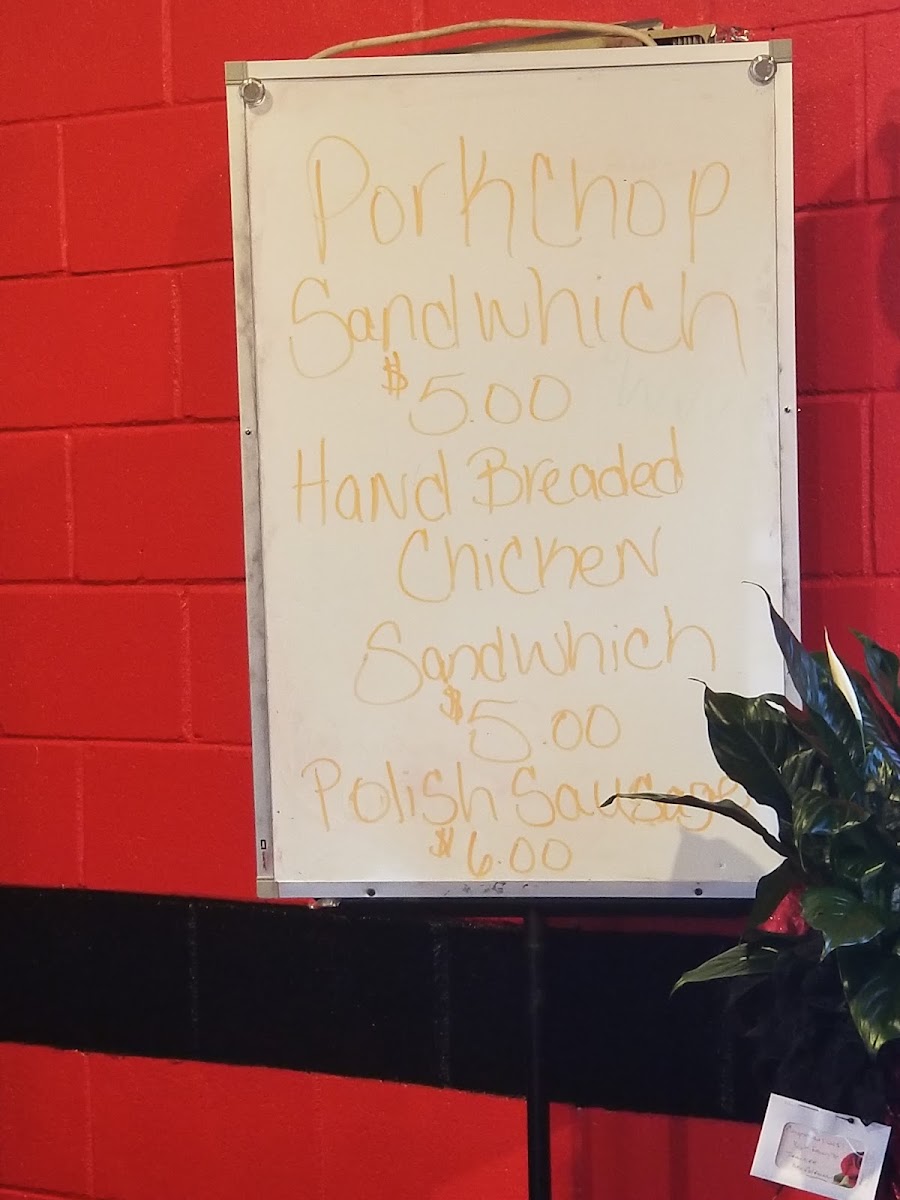 Porkchop
Sandwhich
$5.00
Hand Breaded
Chicken
Sandwhich
$5.00
Polish Sausage
$6.00